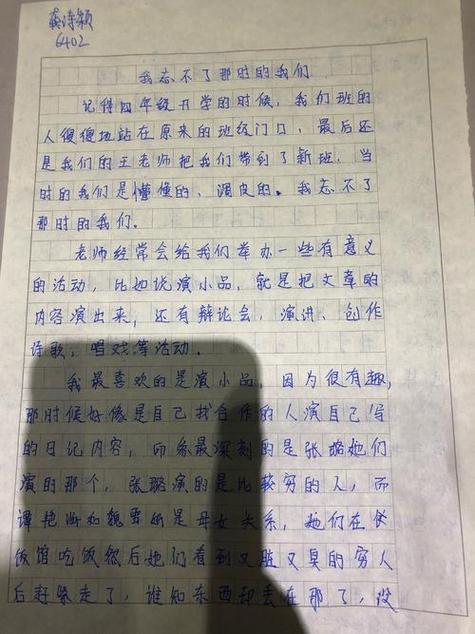 龚诗颖
6402
我忘不了那时的我们
记得四年级开学的时候，我们班的
人傻傻地站在原来的班级门口，最后还
是我们的王老师把我们带到了新班，当
时的我们是懵懂的、调皮的。我忘不了
那时的我们。
老师经常会给我们举办一些有意义
的活动，比如说演小品，就是把文章的
内容演出来，还有辩论会，演讲、创作
诗歌，唱戏等活动。
我最喜欢的是演小品，因为很有趣，
那时候好像是自己找合作的人演自己写
的日记内容，印象最深刻的是张璐她们
演的那个，张璐演的是比较穷的人，而
谭艳 和魏雪 是母女关系，她们在
饭馆吃饭然后她们看到又脏又臭的穷人
后赶紧走了，谁知东西却丢在那了，没